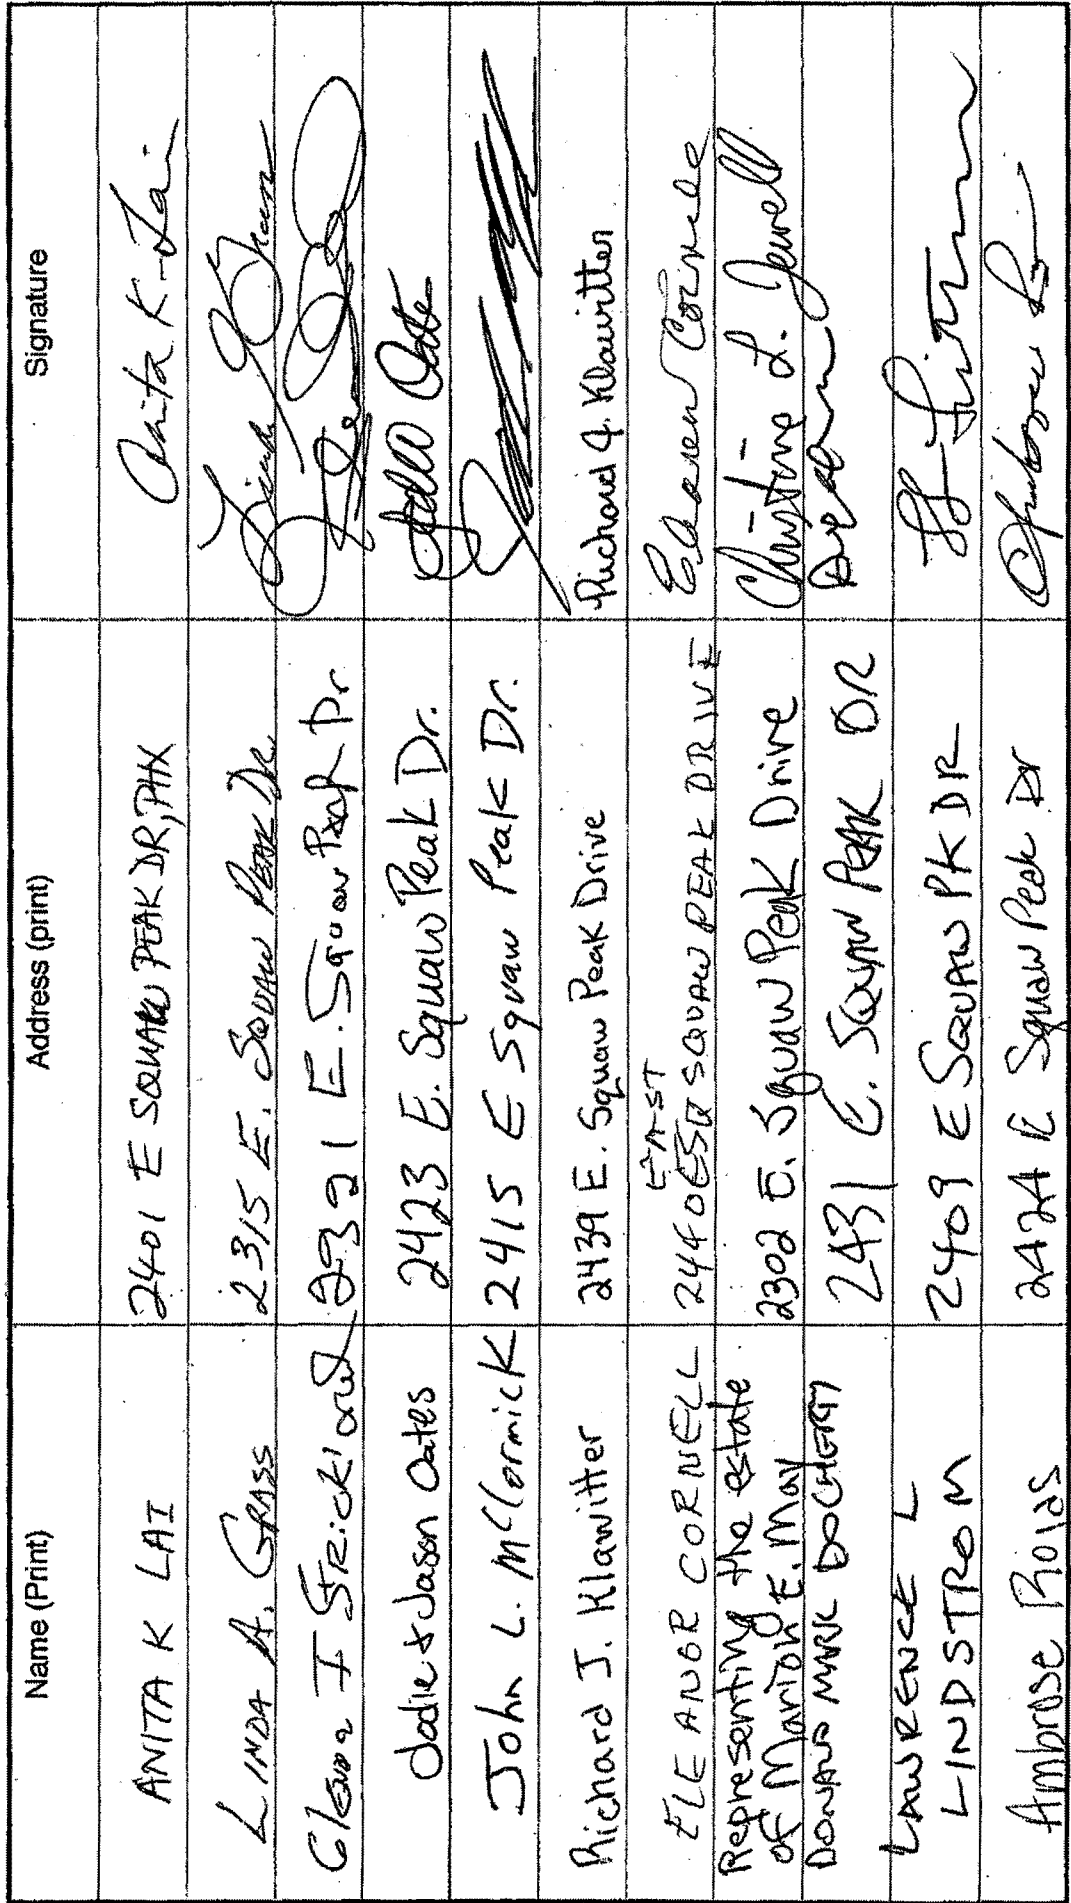 Name (Print) Address (print) Signature
ANITA K LAI 2401 E SQUAW PEAK DR, PHX Anita K. Lai
LINDA A. GRASS 2315 E. SQUAW PEAK DR Linda
Glenda I Strickland 2321 E. Squaw Peak Dr.
Jodie & Jason Oates 2423 E. Squaw Peak Dr. Jodie Oates
John L. McCormick 2415 E Squaw Peak Dr.
Richard J. Klawitter 2439 E. Squaw Peak Drive Richard J. Klawitter
EAST
ELEANOR CORNELL 2440 SQUAW PEAK DRIVE Eleanor Cornell
Representing the estate
of Marion E. May 2302 E. Squaw Peak Drive Christine L. Jewell
DONALD MARK DOCHERTY 2431 E. SQUAW PEAK DR
LAWRENCE L
LINDSTROM 2409 E SQUAW PK DR
Ambrose Rolds 2424 E Squaw Peak Dr Ambrose